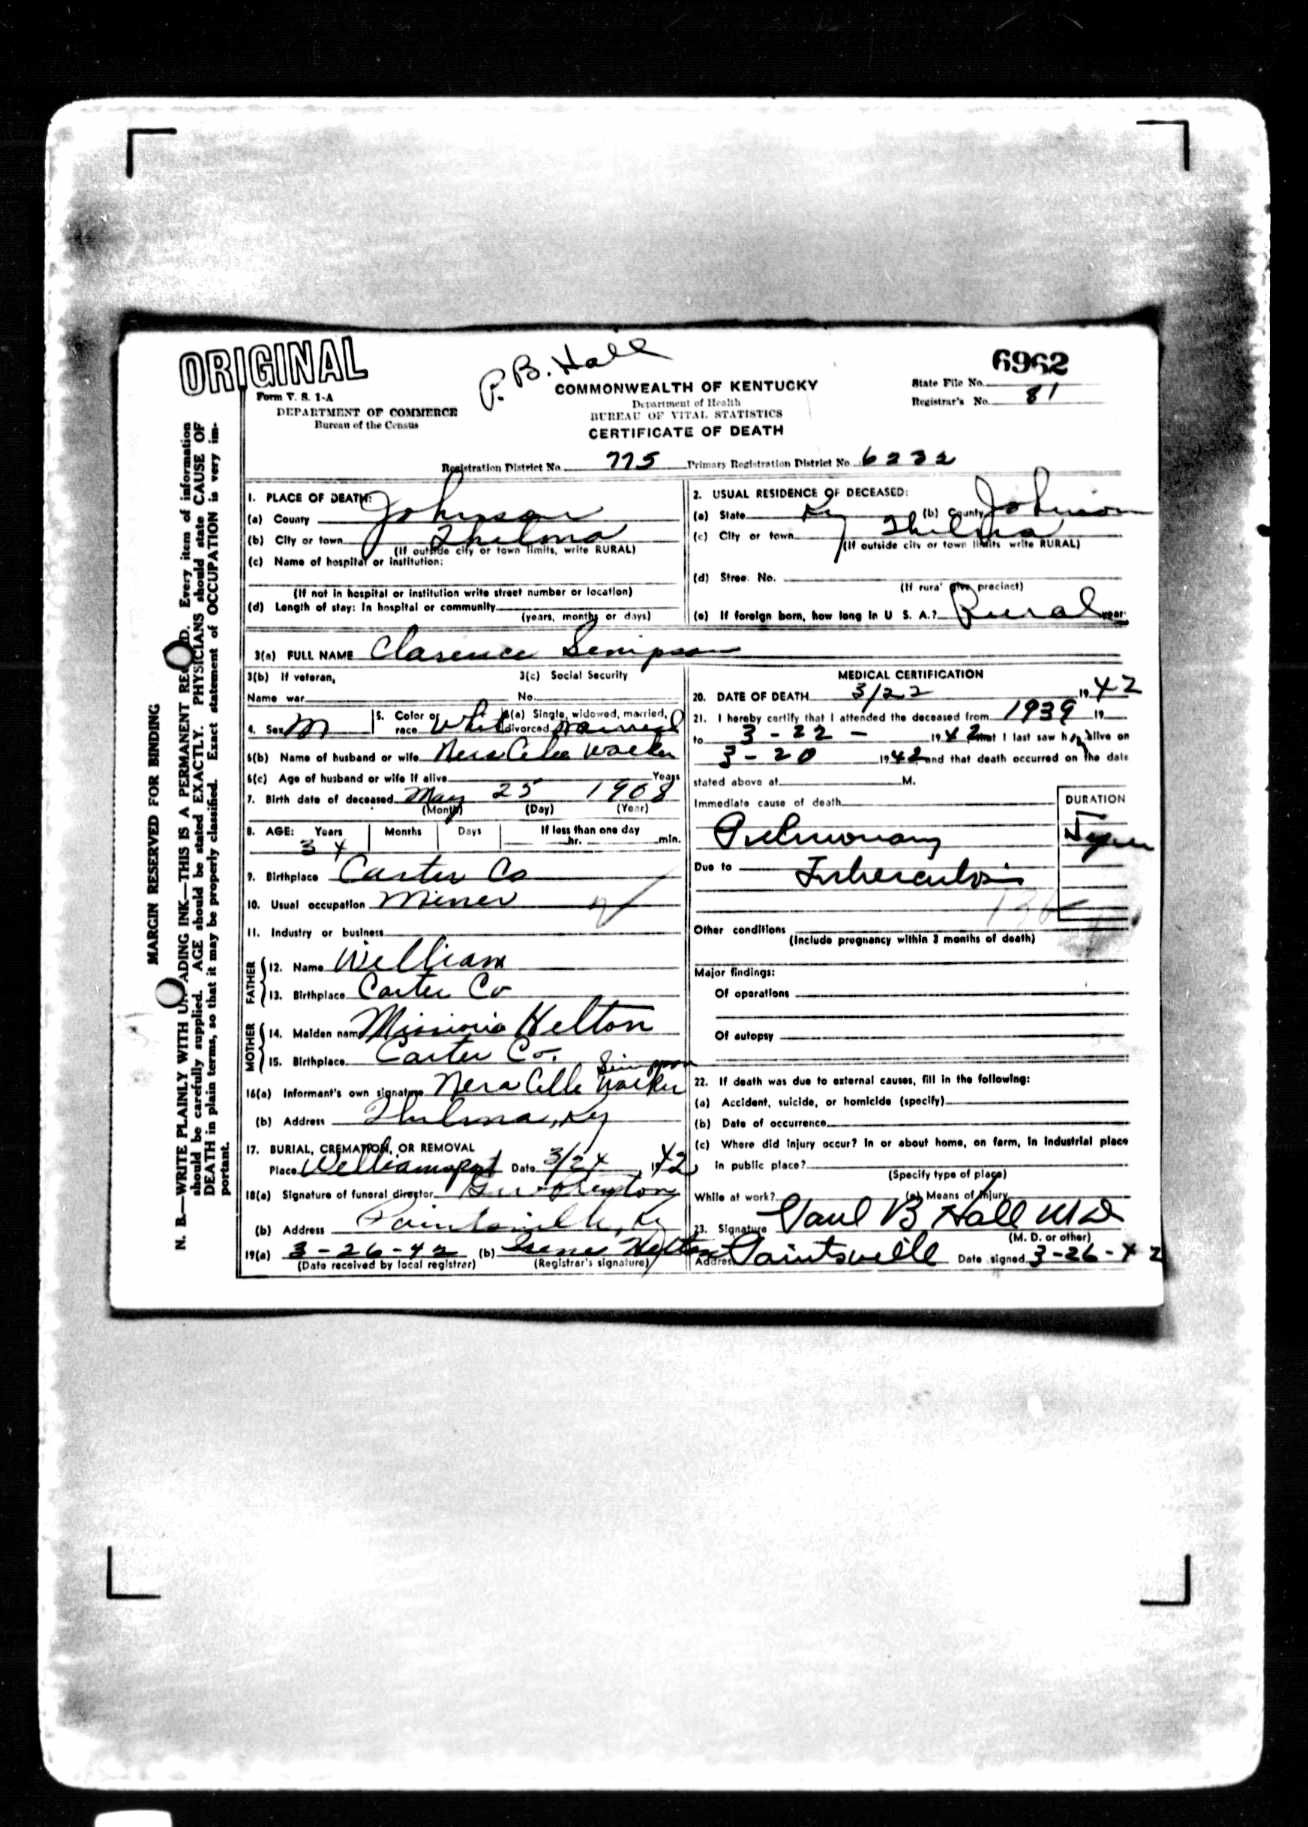 ORIGINAL
P. B. Hall
6962
Form V. S. 1-A
DEPARTMENT OF COMMERCE
Bureau of the Census
COMMONWEALTH OF KENTUCKY
Department of Health
BUREAU OF VITAL STATISTICS
CERTIFICATE OF DEATH
State File No.
Registrar's No. 81
Registration District No. 775 Primary Registration District No. 6232
MARGIN RESERVED FOR BINDING
N. B.—WRITE PLAINLY WITH UNFADING INK—THIS IS A PERMANENT RECORD. Every item of information
should be carefully supplied. AGE should be stated EXACTLY. PHYSICIANS should state CAUSE OF
DEATH in plain terms, so that it may be properly classified. Exact statement of OCCUPATION is very im-
portant.
1. PLACE OF DEATH:
(a) County Johnson
(b) City or town Thelma
(If outside city or town limits, write RURAL)
(c) Name of hospital or institution:
(If not in hospital or institution write street number or location)
(d) Length of stay: In hospital or community
(years, months or days)
2. USUAL RESIDENCE OF DECEASED:
(a) State Ky (b) County Johnson
(c) City or town Thelma
(If outside city or town limits write RURAL)
(d) Street No.
(If rural give precinct)
(e) If foreign born, how long in U. S. A.? Rural years
3(a) FULL NAME Clarence Simpson
3(b) If veteran, 3(c) Social Security
Name war No.
4. Sex M 5. Color or race White 6(a) Single, widowed, married, divorced Married
6(b) Name of husband or wife Nera Celle Walker
6(c) Age of husband or wife if alive Years
7. Birth date of deceased May 25 1908
(Month) (Day) (Year)
8. AGE: Years Months Days If less than one day
34 hr. min.
9. Birthplace Carter Co
10. Usual occupation Miner
11. Industry or business
FATHER
12. Name William
13. Birthplace Carter Co
MOTHER
14. Maiden name Missouria Helton
15. Birthplace Carter Co.
Simpson
16(a) Informant's own signature Nera Celle Walker
(b) Address Thelma, Ky
17. BURIAL, CREMATION, OR REMOVAL
Place Williamsport Date 3/24, 1942
18(a) Signature of funeral director
(b) Address Paintsville, Ky
19(a) 3-26-42 (b) Irene Helton
(Date received by local registrar) (Registrar's signature)
MEDICAL CERTIFICATION
20. DATE OF DEATH 3/22 1942
21. I hereby certify that I attended the deceased from 1939 19
to 3-22- 1942 that I last saw h alive on
3-20 1942 and that death occurred on the date
stated above at M.
Immediate cause of death DURATION
Pulmonary
Due to Tuberculosis
Other conditions
(Include pregnancy within 3 months of death)
Major findings:
Of operations
Of autopsy
22. If death was due to external causes, fill in the following:
(a) Accident, suicide, or homicide (specify)
(b) Date of occurrence
(c) Where did injury occur? In or about home, on farm, in industrial place
in public place?
(Specify type of place)
While at work? (e) Means of injury
23. Signature Paul B Hall MD
(M. D. or other)
Address Paintsville Date signed 3-26-42